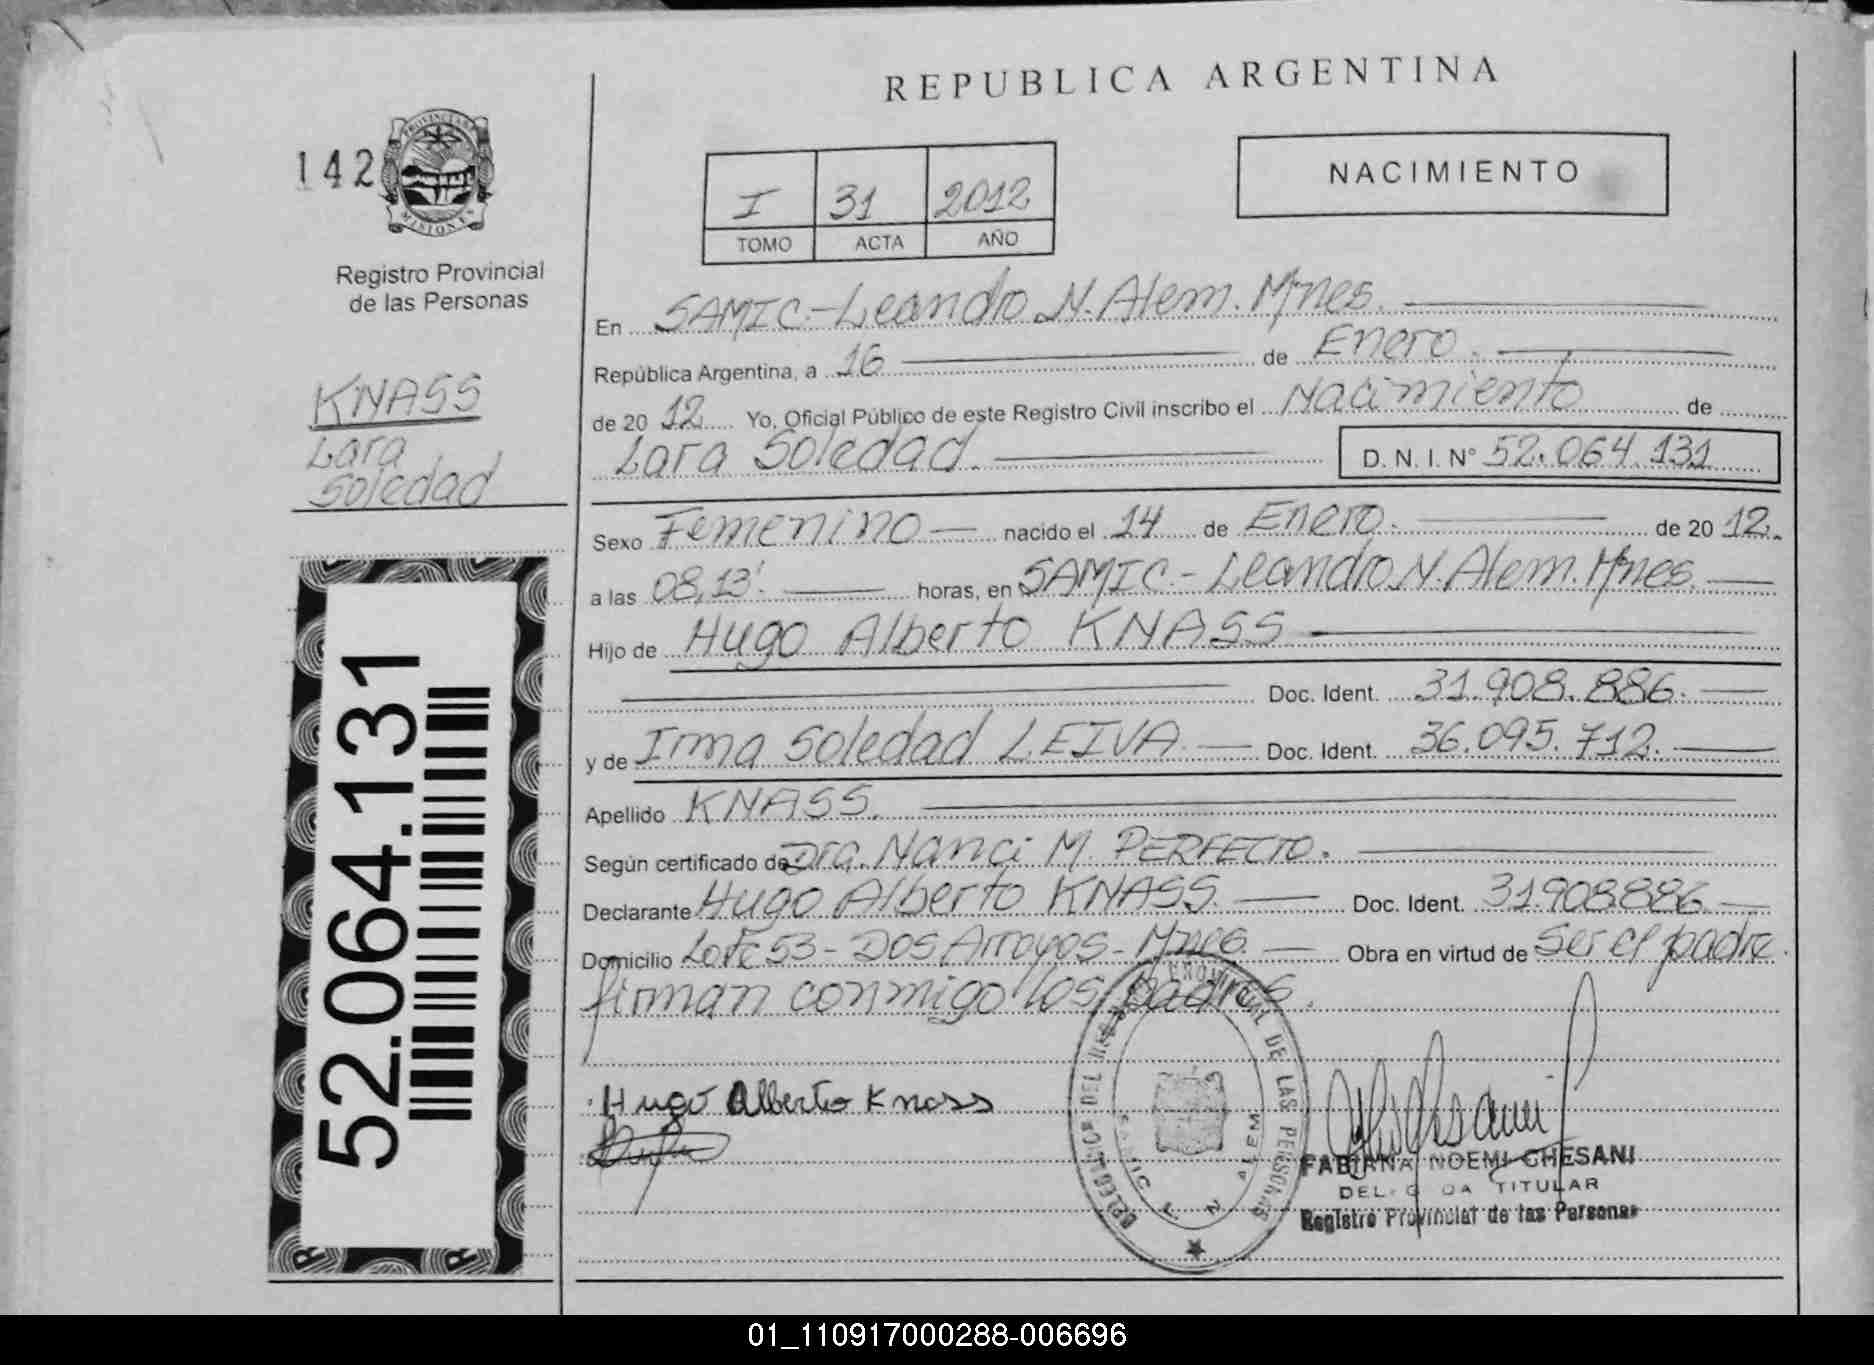 REPUBLICA ARGENTINA
142
PROVINCIA DE
MISIONES
Registro Provincial
de las Personas
I 31 2012
TOMO ACTA AÑO
NACIMIENTO
KNASS
Lara
Soledad
En SAMIC.-Leandro N. Alem. Mnes.
República Argentina, a 16 de Enero.
de 20 12 Yo, Oficial Público de este Registro Civil inscribo el Nacimiento de
Lara Soledad. D. N. I. N° 52.064.131
Sexo Femenino nacido el 14 de Enero. de 20 12.
a las 08,13'. horas, en SAMIC.- Leandro N. Alem. Mnes.
Hijo de Hugo Alberto KNASS
Doc. Ident. 31.908.886.
y de Irma Soledad LEIVA Doc. Ident. 36.095.712.
Apellido KNASS.
Según certificado de Dra. Nanci M. PERFECTO.
Declarante Hugo Alberto KNASS. Doc. Ident. 31908886
Domicilio Lote 53 - Dos Arroyos - Mnes. Obra en virtud de ser el padre.
firman conmigo los padres.
52.064.131
Hugo Alberto Knass
PROVINCIAL DE LAS PERSONAS
L N ALEM
FABIANA NOEMI CHESANI
TITULAR
Registro Provincial de las Personas
01_110917000288-006696